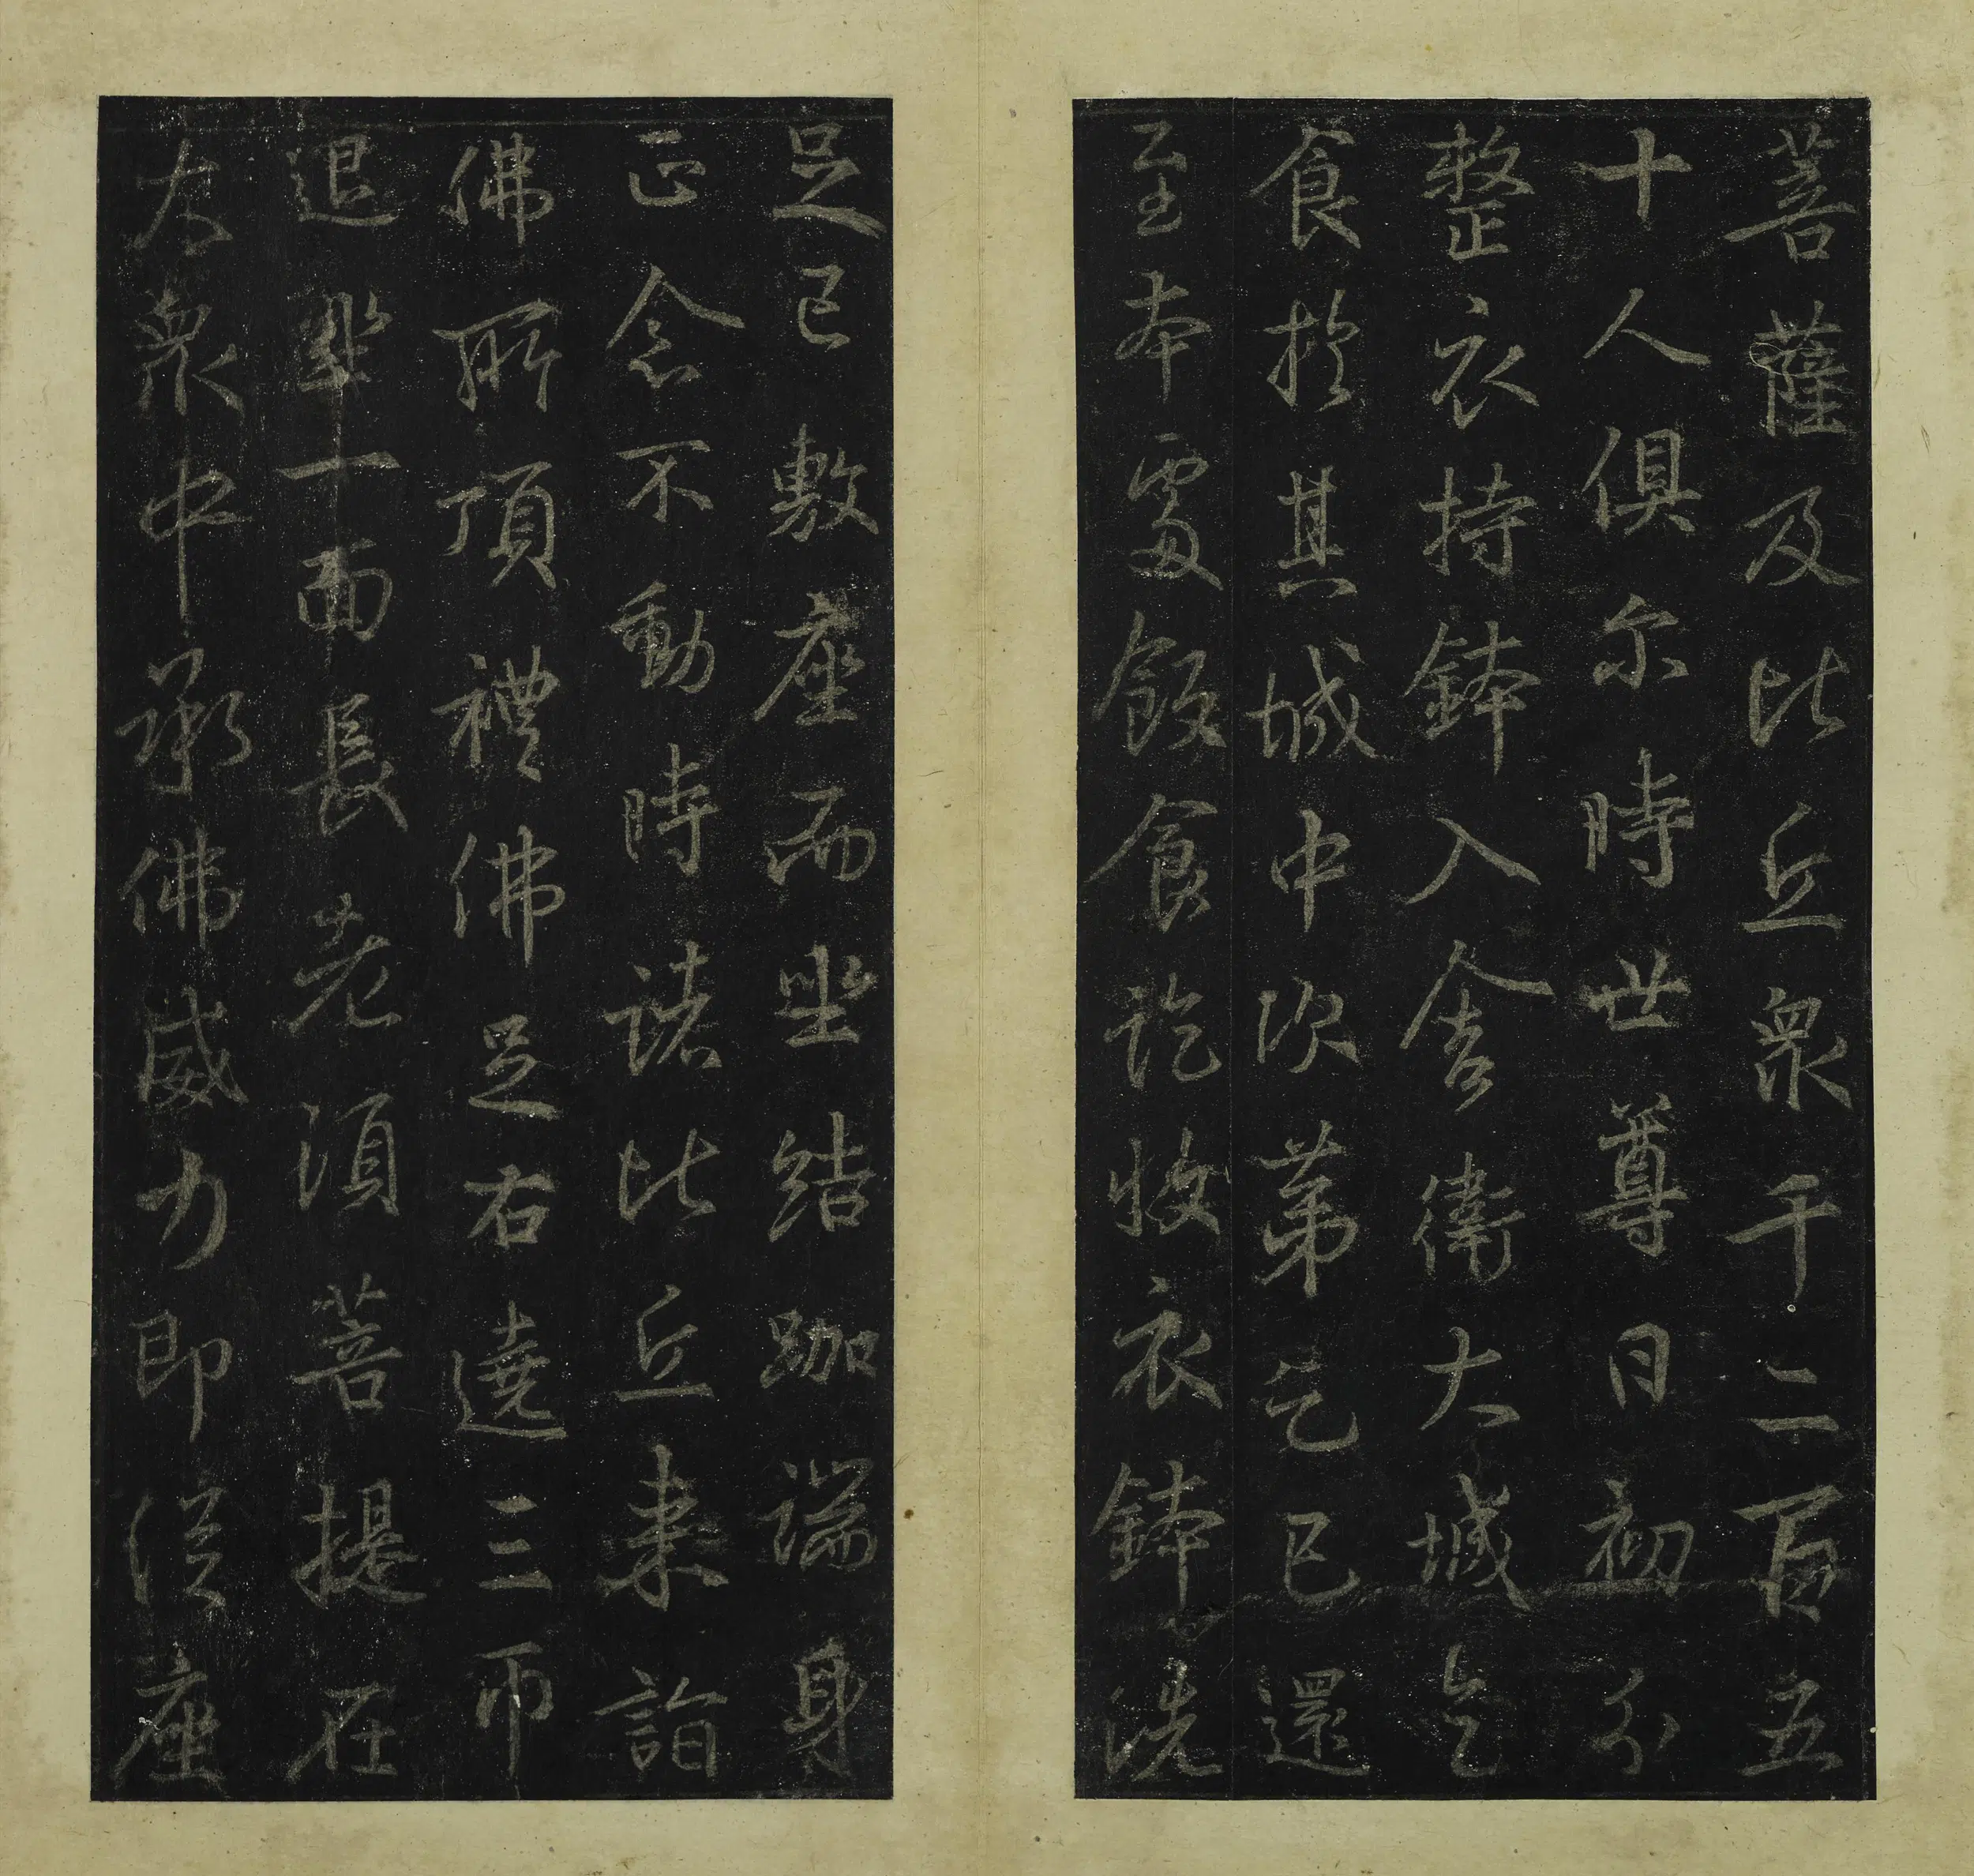 菩薩及比丘衆千二百五
十人俱尒時世尊日初分
整衣持鉢入舍衛大城乞
食於其城中次第乞已還
至本處飯食訖收衣鉢洗
足已敷座而坐結跏端身
正念不動時諸比丘来詣
佛所頂禮佛足右遶三帀
退坐一面長老須菩提在
大衆中承佛威力即從座